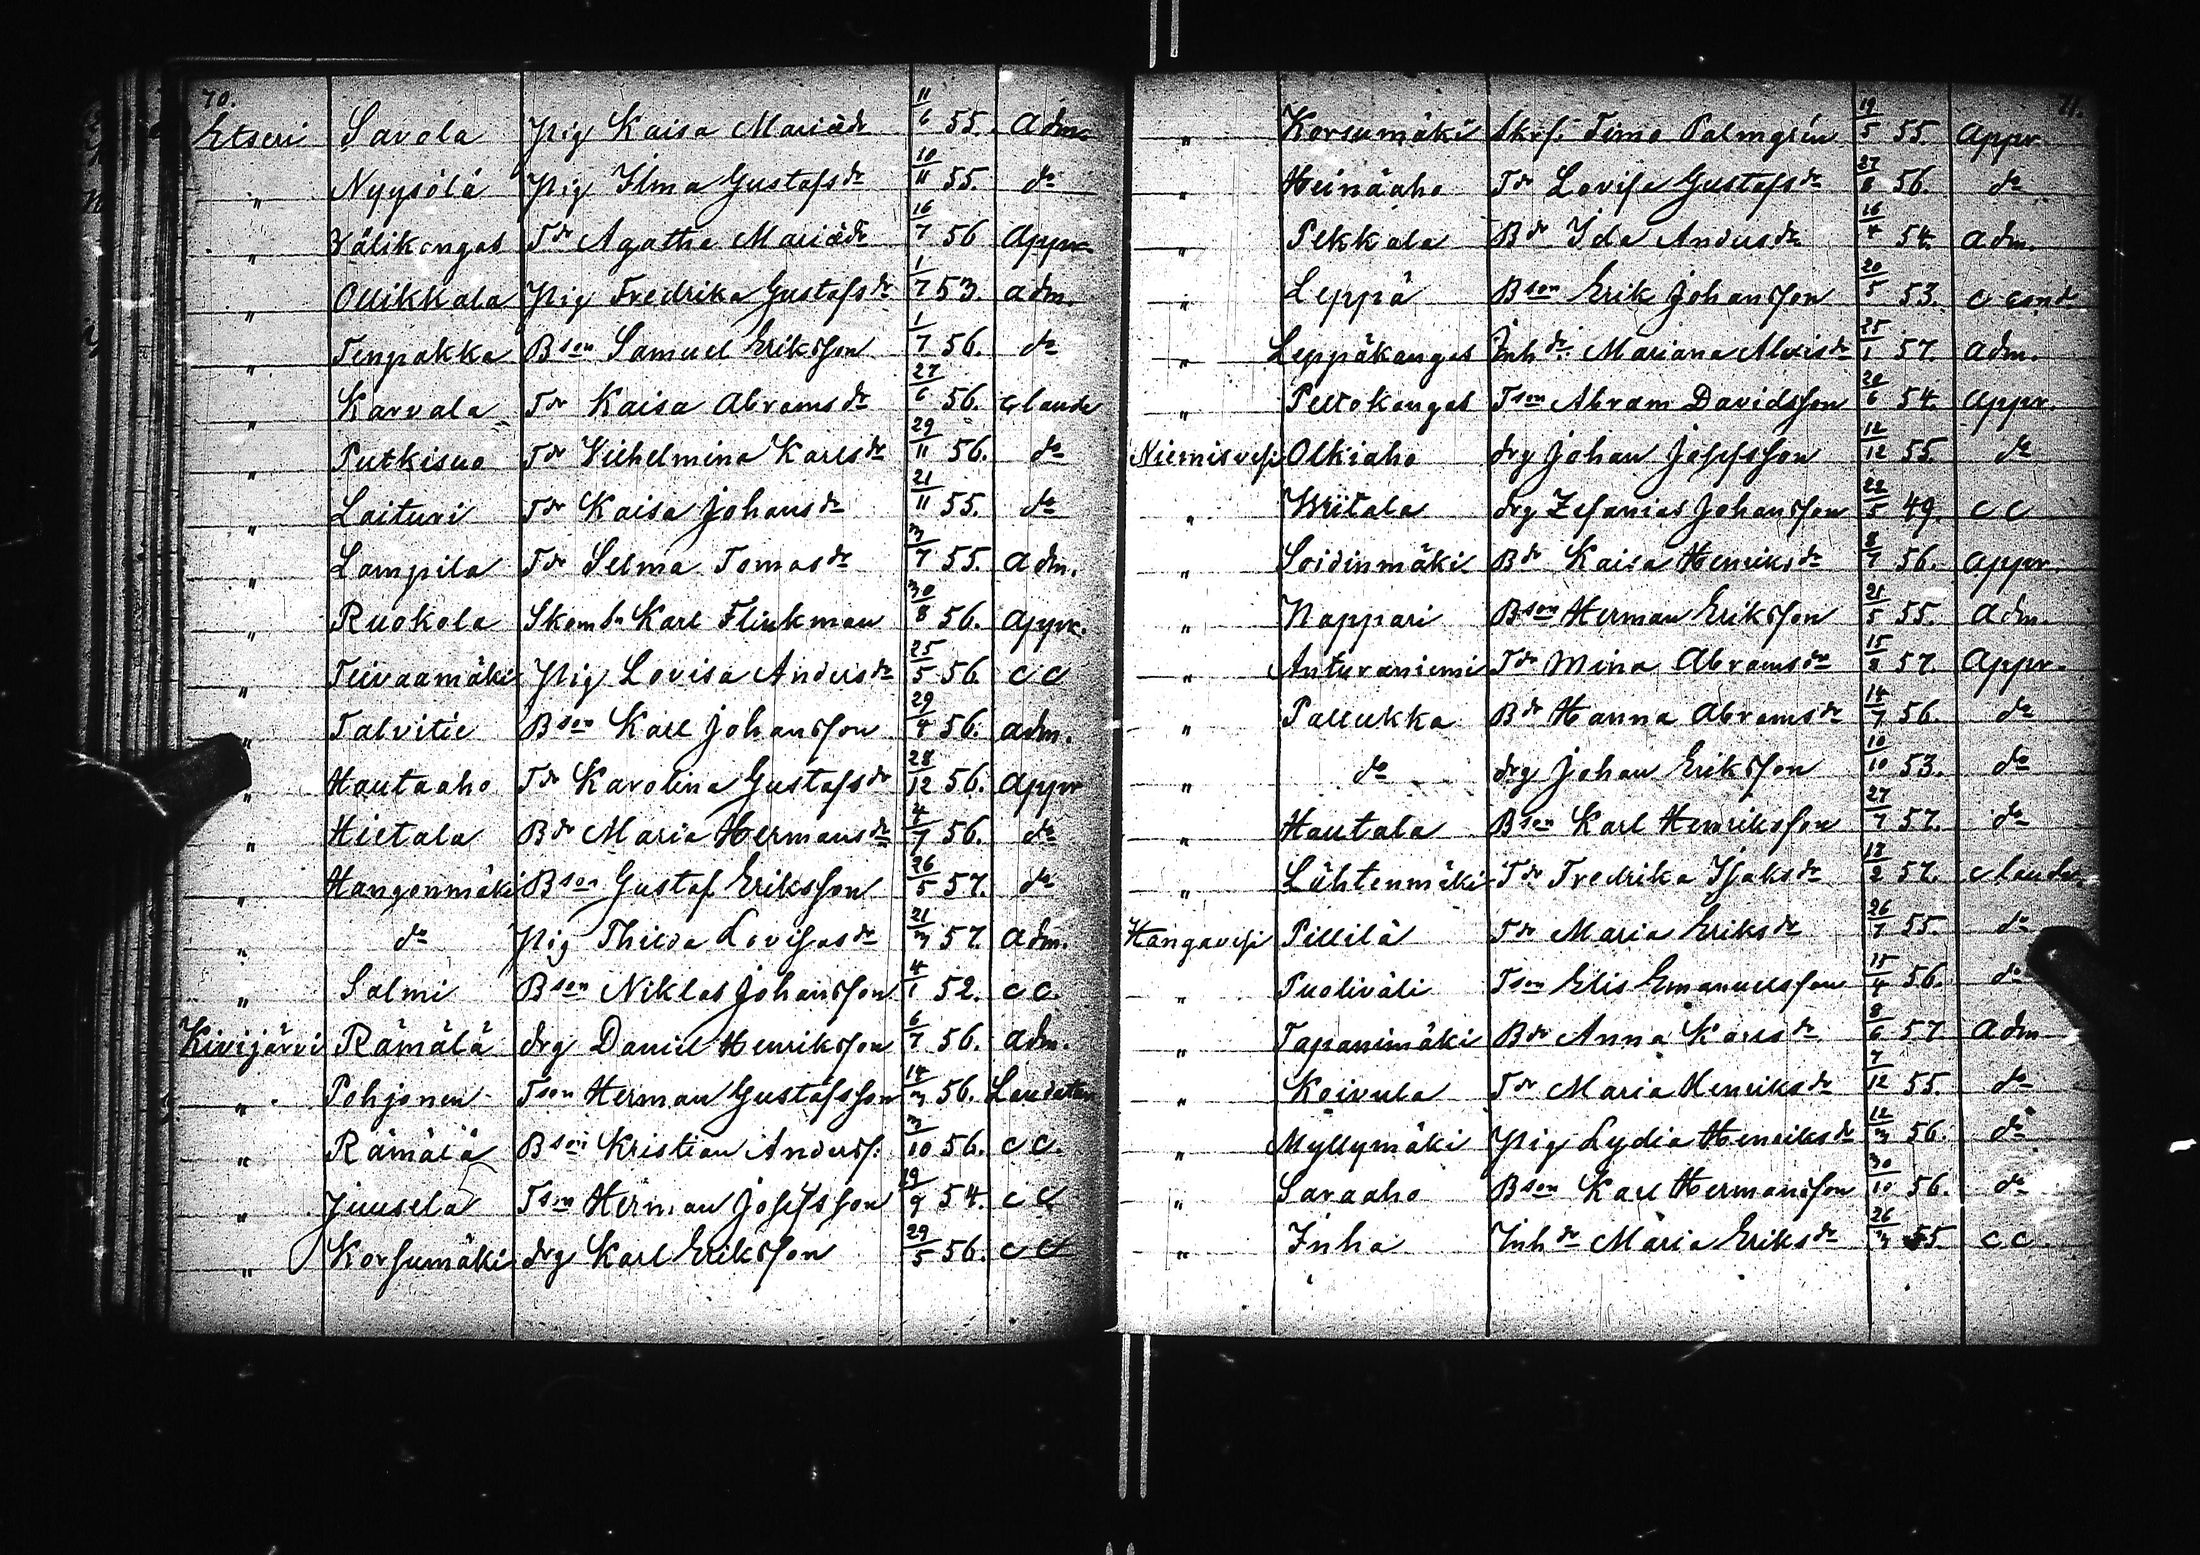 70.
Etseri Savola Pig Kaisa Mariædr 11/6 55. Adm.
" Nyysölä Pig Ilma Gustafsdr 10/11 55. do
" Välikangas Tdr Agatha Mariædr 16/7 56 Appr.
" Ollikkala Pig Fredrika Gustafsdr 1/7 53. adm.
" Tenpakka Bson Samuel Eriksson 1/7 56. do
" Karvala Tdr Kaisa Abramsdr 27/6 56. c laude
" Putkisuo Tdr Vilhelmina Karlsdr 29/11 56. do
" Laituri Tdr Kaisa Johansdr 21/11 55. do
" Lampila Tdr Selma Tomasdr 3/7 55. Adm.
" Ruokola Karl Flinkman 30/8 56. Appr.
" Teivaamäki Pig Lovisa Andersdr 25/5 56 c c
" Talvitie Bson Karl Johansson 29/4 56. adm.
" Hautaaho Tdr Karolina Gustafsdr 28/12 56. Appr
" Hietala Bdr Maria Hermansdr 4/7 56. do
" Hangonmäki Bson Gustaf Eriksson 26/5 57. do
" do Pig Thilda Lovisasdr 21/3 57. Adm.
" Salmi Bson Niklas Johansson 4/1 52. c c.
Kivijärvi Rämälä drg Daniel Henriksson 6/7 56. Adm.
" Pohjonen Tson Herman Gustafsson 14/3 56. Laudatur
" Rämälä Bson Kristian Anderss. 3/10 56. c c.
" Juusela Tson Herman Josefsson 19/9 54. c c
" Korsumäki drg Karl Eriksson 29/5 56. c c
71.
" Korsumäki Skrs. Timo Palmgrén 19/5 55. Appr.
" Heinäaho Tdr Lovisa Gustafsdr 27/8 56. do
" Pekkala Bdr Ida Andersdr 16/4 54. Adm.
" Leppä Bson Erik Johansson 20/5 53. c cand
" Leppäkangas Inhdr. Mariana Alexisdr 25/1 57. Adm.
" Peltokangas Tson Abram Davidsson 20/6 54. Appr.
Niemisvesi Olkiaho drg Johan Josefsson 12/12 55. do
" Wiitala drg Zefanias Johansson 22/5 49. c c
" Soidinmäki Bdr Kaisa Henriksdr 8/7 56. Appr.
" Nappari Bson Herman Eriksson 21/5 55. Adm.
" Anturaniemi Tdr Mina Abramsdr 15/8 57. Appr.
" Pallukka Bdr Hanna Abramsdr 14/7 56. do
" do drg Johan Eriksson 10/10 53. do
" Hautala Bson Karl Henriksson 27/7 57. do
" Lähtenmäki Tdr Fredrika Isaksdr 18/2 57. c laude.
Hangavesi Pillilä Tdr Maria Eriksdr 26/7 55. do
" Puoliväli Tson Elis Emanuelsson 15/4 56. do
" Tapanimäki Bdr Anna Karlsdr 8/6 57. Adm
" Koivula Tdr Maria Henriksdr 7/12 55. do
" Myllymäki Pig Lydia Henriksdr 12/3 56. do
" Saraaho Bson Karl Hermansson 30/10 56. do
" Inha Inhdr Maria Eriksdr 26/3 55. c c.